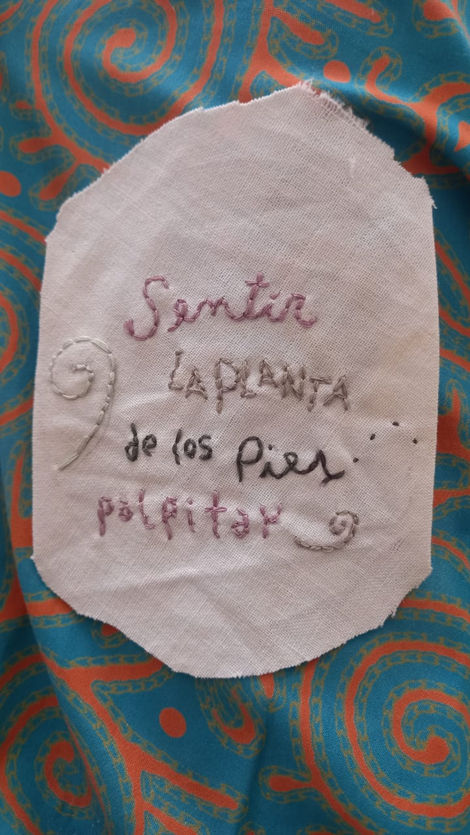 Sentir
LA PLANTA
de los Pies
palpitar